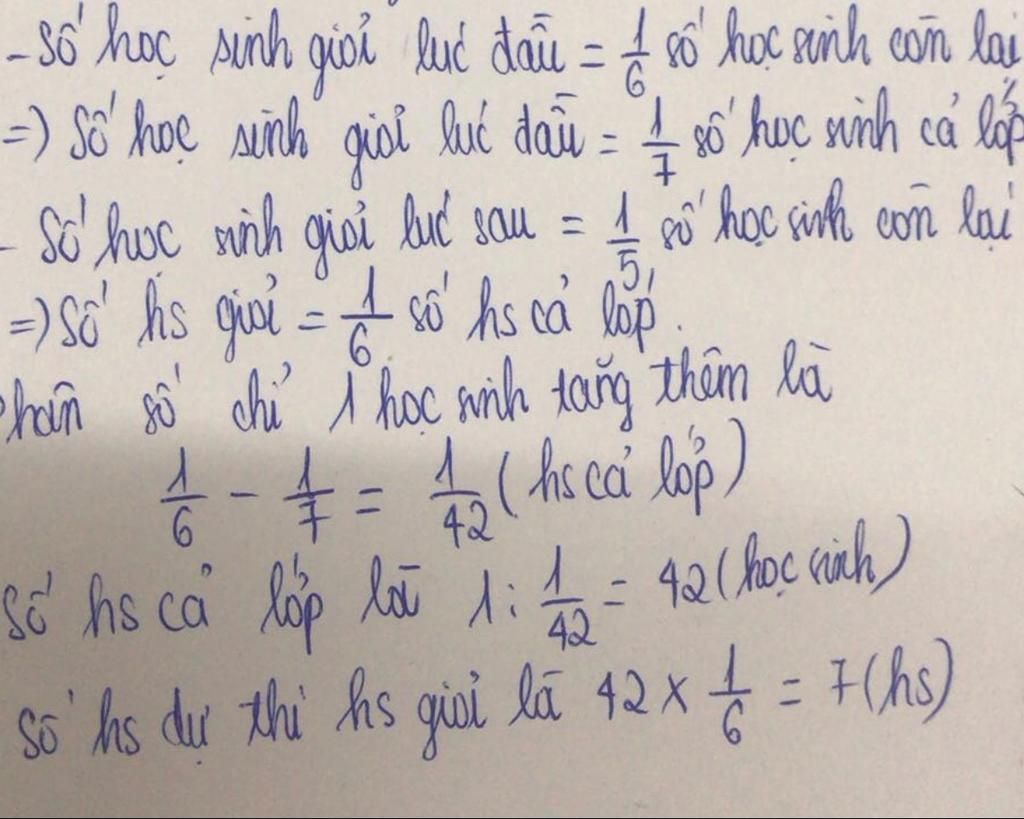 - Số học sinh giỏi lúc đầu = 1/6 số học sinh còn lại
=) Số học sinh giỏi lúc đầu = 1/7 số học sinh cả lớp
- Số học sinh giỏi lúc sau = 1/5 số học sinh còn lại
=) Số hs giỏi = 1/6 số hs cả lớp.
Phân số chỉ 1 học sinh tăng thêm là
1/6 - 1/7 = 1/42 (hs cả lớp)
Số hs cả lớp là 1 : 1/42 = 42 (học sinh)
Số hs dự thi hs giỏi là 42 x 1/6 = 7 (hs)